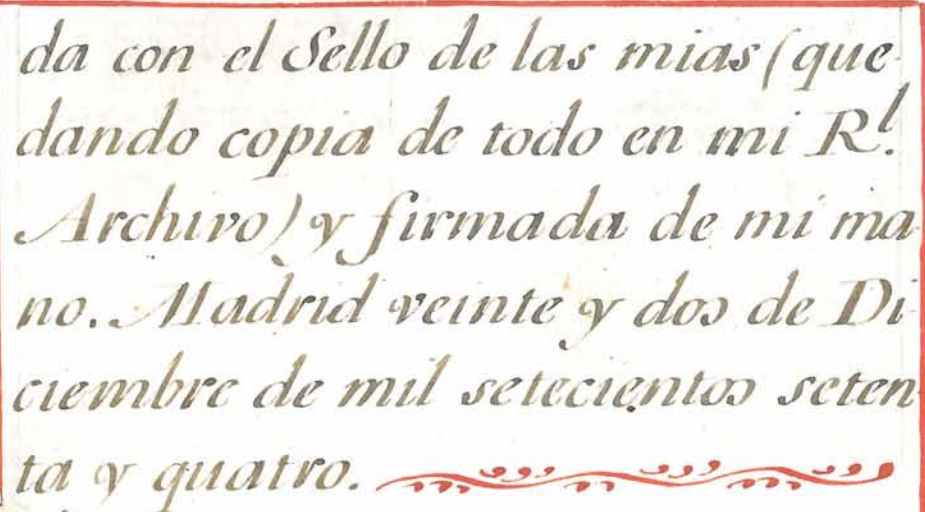 da con el Sello de las mias (que
dando copia de todo en mi R.l
Archivo) y firmada de mi ma
no. Madrid veinte y dos de Di
ciembre de mil setecientos seten
ta y quatro.